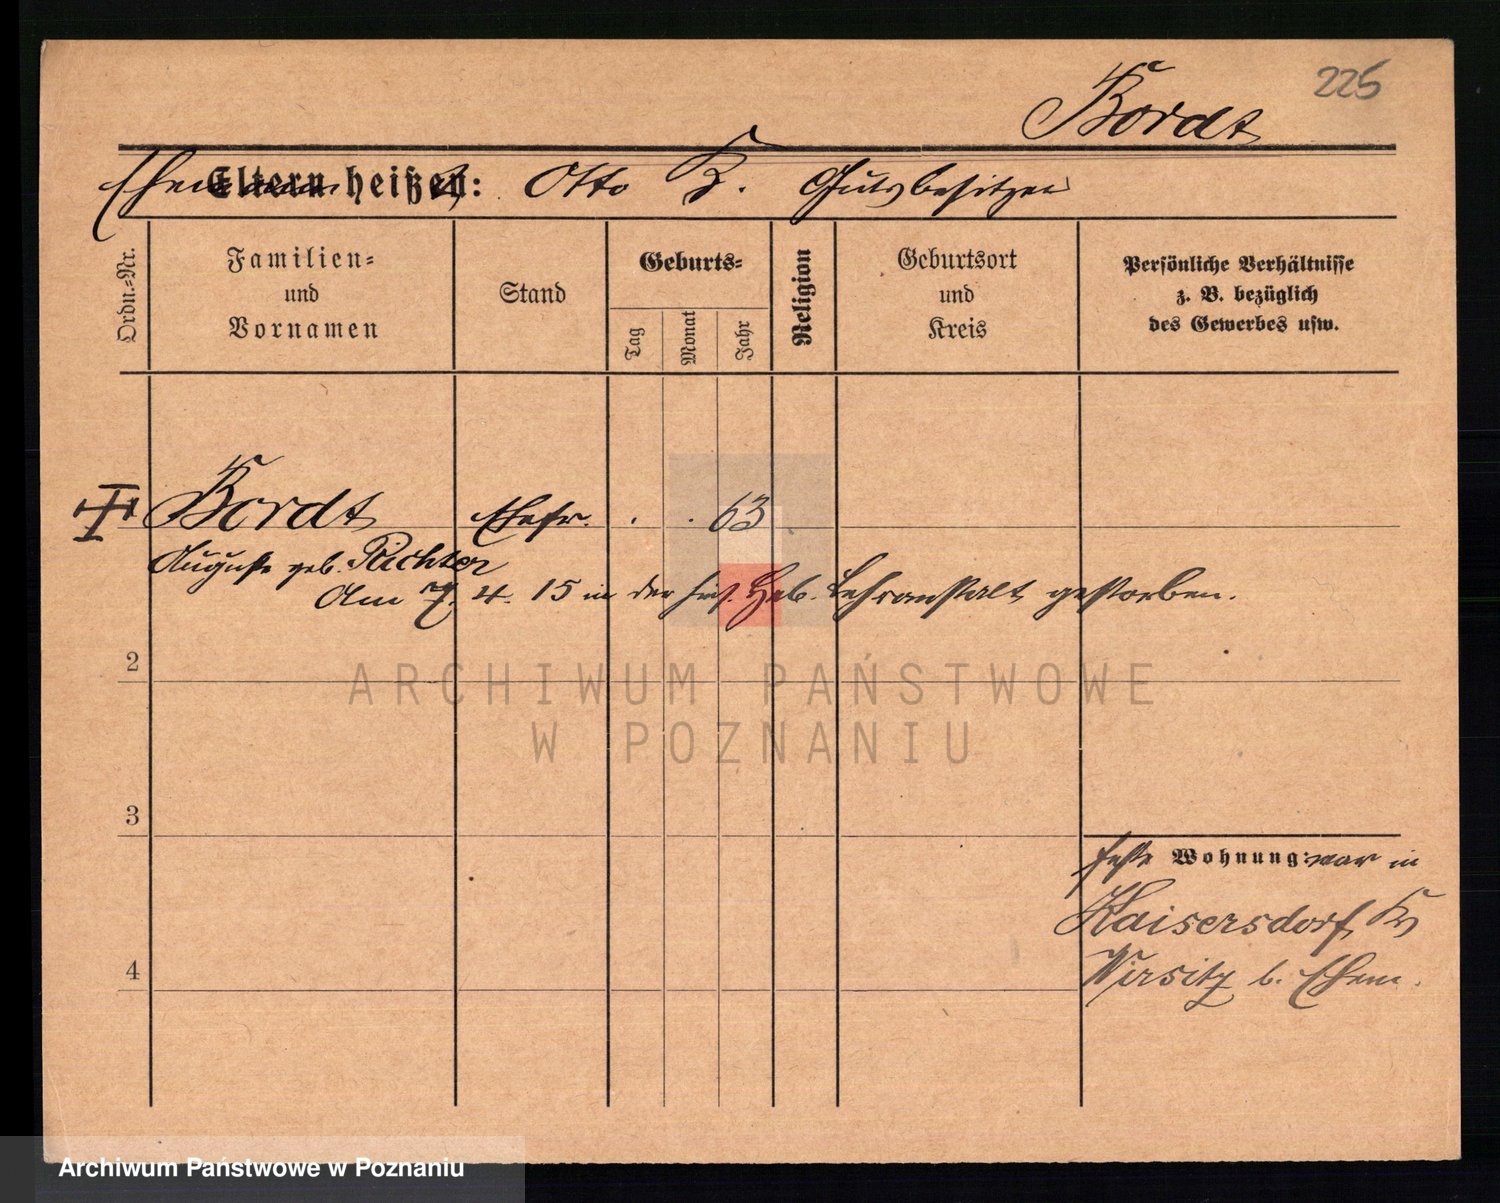 225
Bordt
Ehemann Eltern heißen: Otto B. Gutsbesitzer
Ordn.-Nr.
Familien-
und
Vornamen
Stand
Geburts-
Tag
Monat
Jahr
Religion
Geburtsort
und
Kreis
Persönliche Verhältnisse
z. B. bezüglich
des Gewerbes usw.
Bordt Ehefr. . . 63
Auguste geb. Richter
Am 7. 4. 15 in der Heb. Lehranstalt gestorben.
2
ARCHIWUM PAŃSTWOWE
W POZNANIU
3
feste Wohnung: war in
Kaisersdorf, Kr
4
Wirsitz b. Ehem.
Archiwum Państwowe w Poznaniu